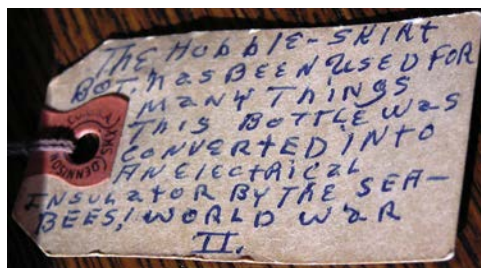 THE HOBBLE-SKIRT
BOT. HAS BEEN USED FOR
MANY THINGS
THIS BOTTLE WAS
CONVERTED INTO
AN ELECTRICAL
INSULATOR BY THE SEA-
BEES, WORLD WAR
II.
DENNISON